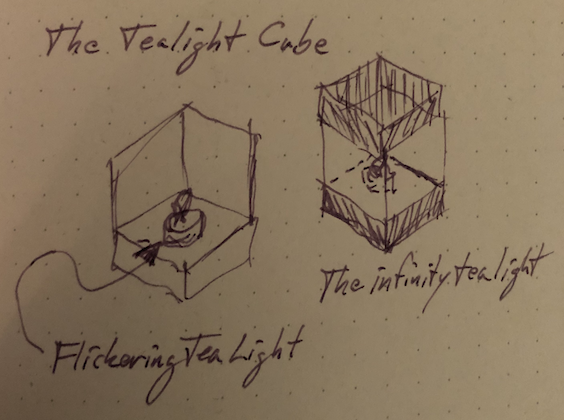 The Tealight Cube
The infinity tealight
Flickering Tea Light